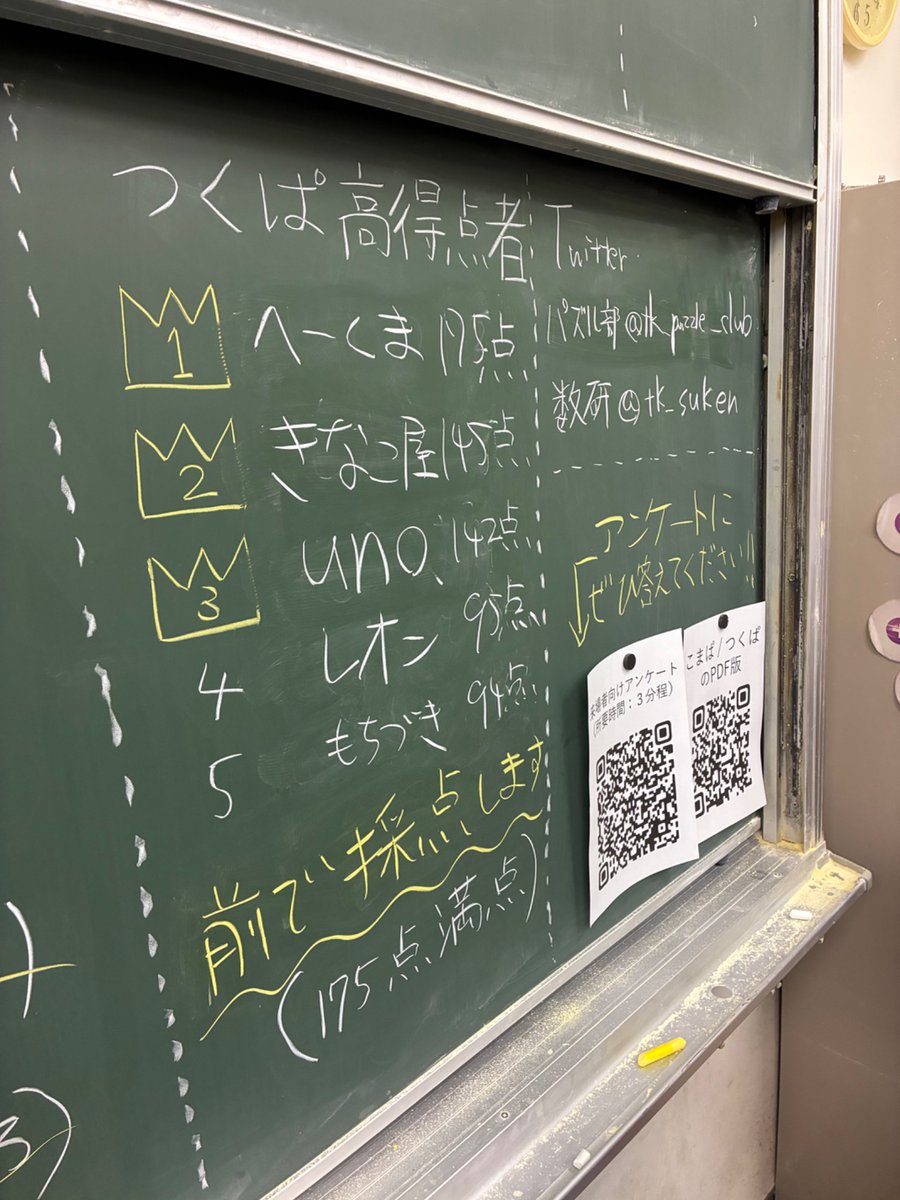 つくぱ高得点者
1 へーくま 175点
2 きなこ屋 145点
3 uno、142点
4 レオン 95点
5 もちづき 94点
前で採点します
(175点満点)
Twitter
パズル部@tk_puzzle_club
数研@tk_suken
アンケートに
ぜひ答えてください!!
来場者向けアンケート
(所要時間:3分程)
こまぱ/つくぱ
のPDF版
3)